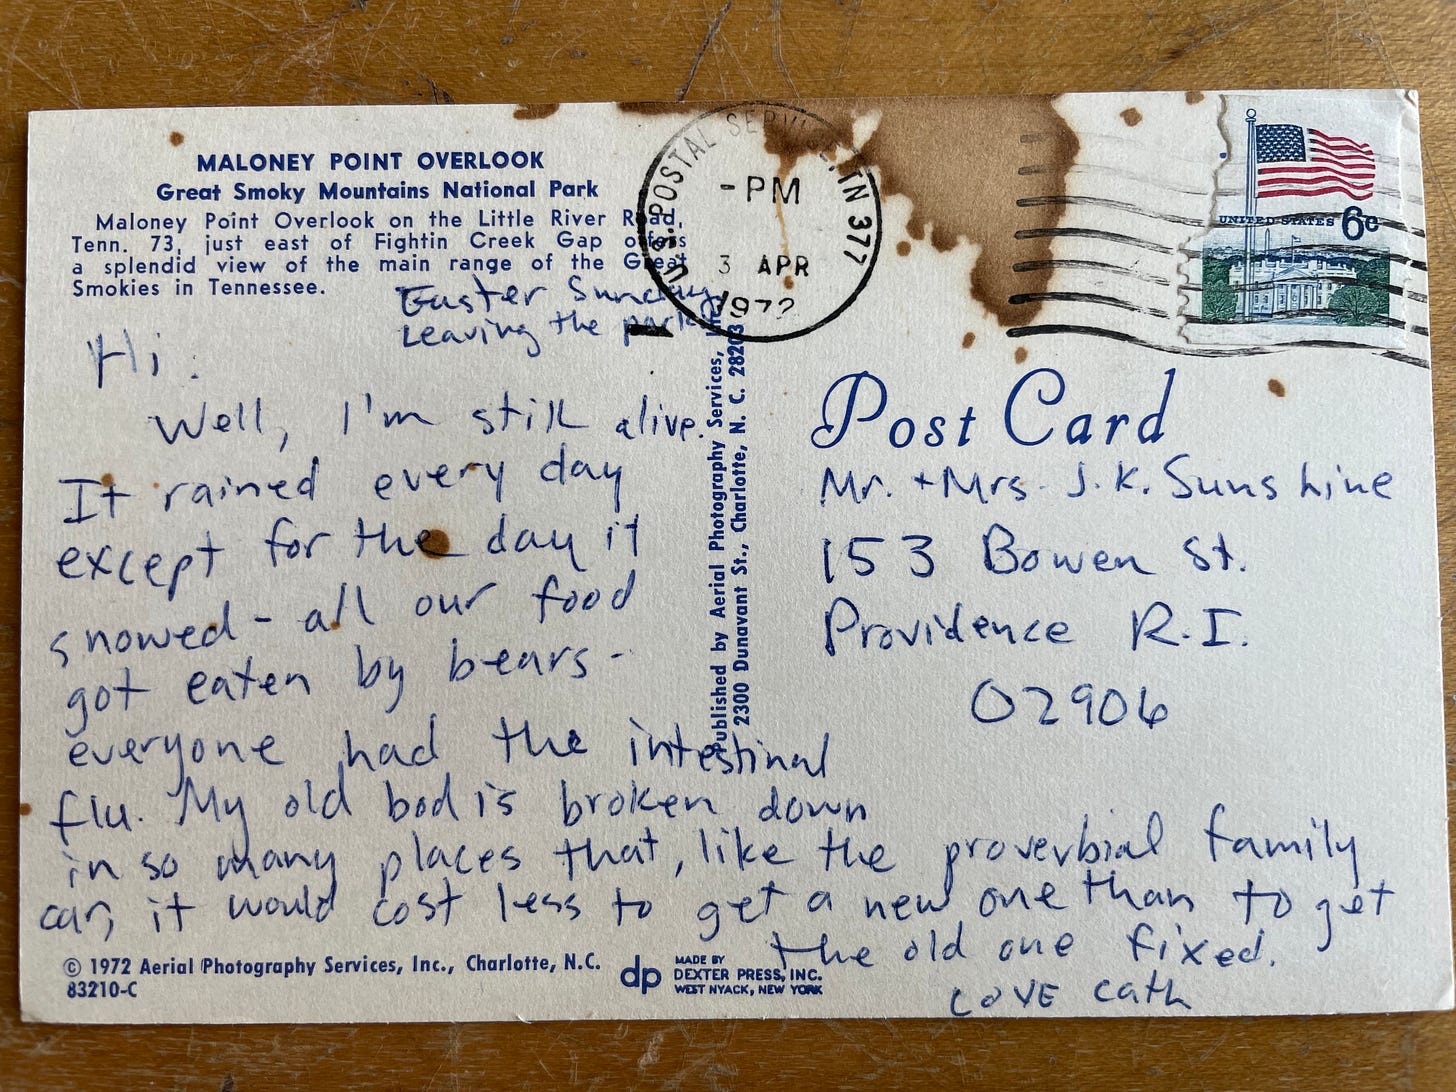 MALONEY POINT OVERLOOK
Great Smoky Mountains National Park
Maloney Point Overlook on the Little River Road,
Tenn. 73, just east of Fightin Creek Gap offers
a splendid view of the main range of the Great
Smokies in Tennessee.
Easter Sunday
Leaving the park
Hi.
Well, I'm still alive.
It rained every day
except for the day it
snowed - all our food
got eaten by bears -
everyone had the intestinal
flu. My old bod is broken down
in so many places that, like the proverbial family
car, it would cost less to get a new one than to get
the old one fixed.
LOVE Cath
© 1972 Aerial Photography Services, Inc., Charlotte, N.C.
83210-C
dp
MADE BY
DEXTER PRESS, INC.
WEST NYACK, NEW YORK
Published by Aerial Photography Services,
2300 Dunavant St., Charlotte, N. C. 28203
U.S. POSTAL SERVICE, TN 377
-PM
3 APR
1972
UNITED STATES 6c
Post Card
Mr. + Mrs. J.K. Sunshine
153 Bowen St.
Providence R.I.
02906